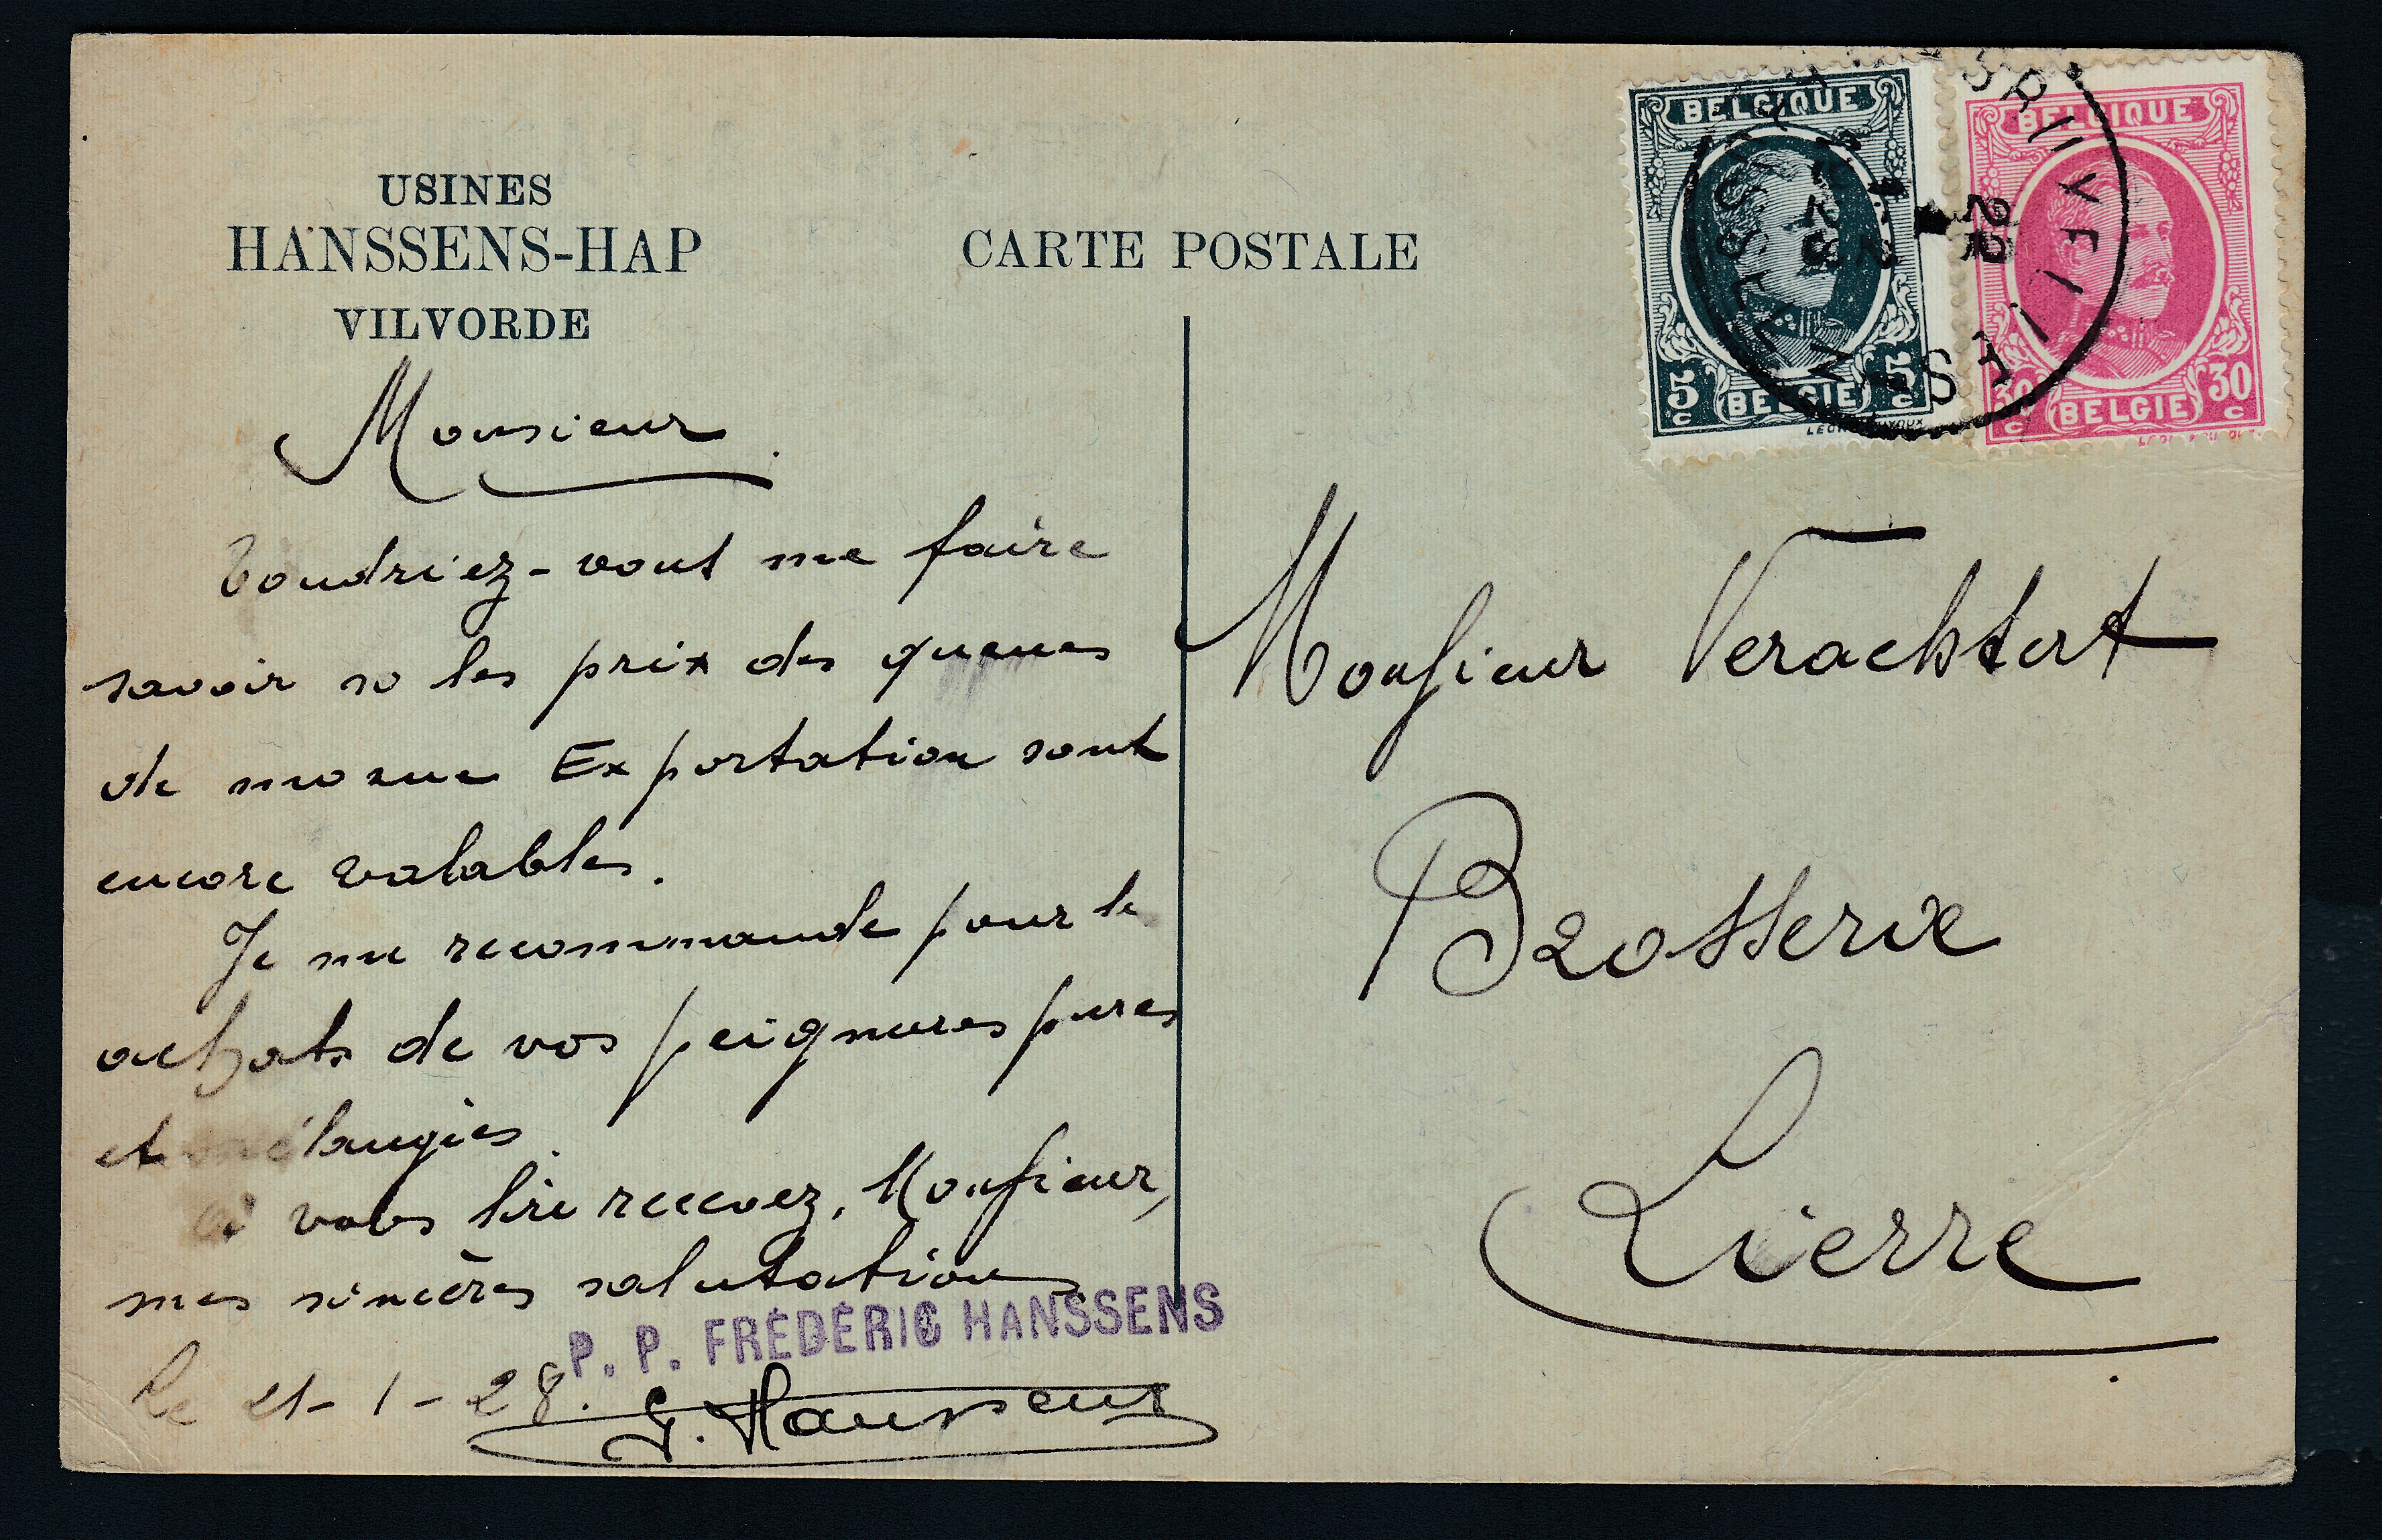 USINES
HANSSENS-HAP
VILVORDE
CARTE POSTALE
BELGIQUE
5 c BELGIË 5 c
BELGIQUE
30 c BELGIË 30 c
BRUXELLES
BRUSSEL
Monsieur
Voudriez-vous me faire
savoir si les prix des queues
de morue Exportation sont
encore valables.
Je me recommande pour le
achats de vos peignures pures
et mélangées.
A vous lire recevez, Monsieur,
mes sincères salutations
P. P. FRÉDÉRIC HANSSENS
Le 21-1-28.
G. Hanssens
Monsieur Verachtert
Brosserie
Lierre